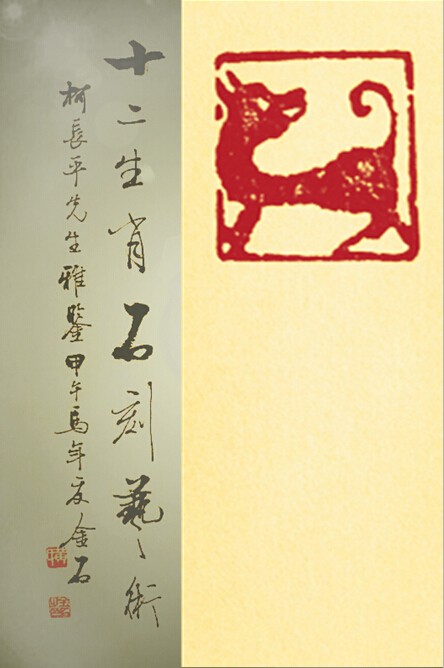 十二生肖石刻艺术
柯長平先生雅鑒甲午馬年友金石